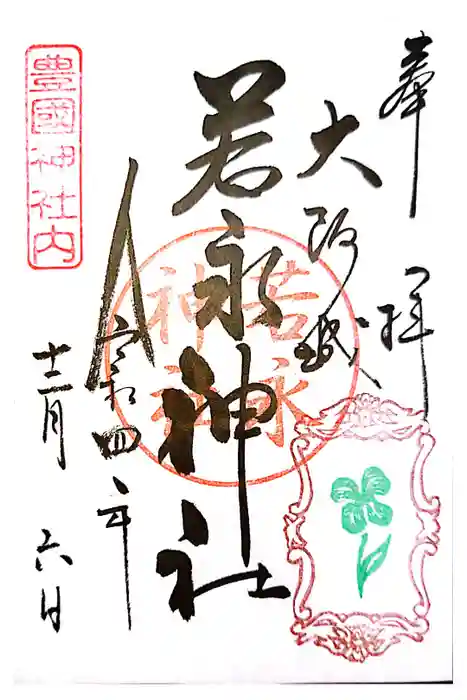 奉拝
大阪城
若永神社
若永
神社
令和四年
十二月六日
豊國神社内